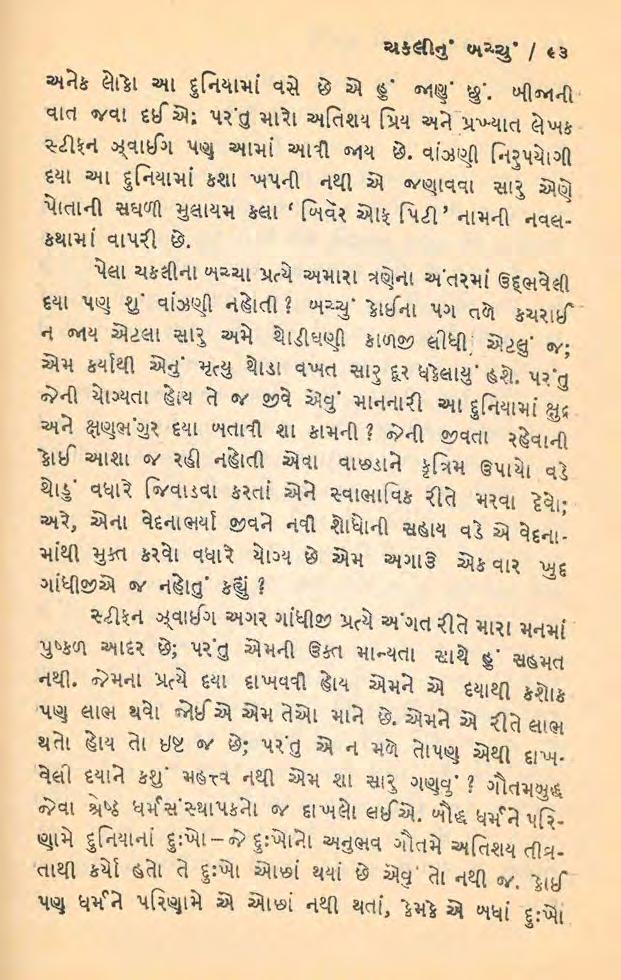 ચકલીનું બચ્ચું / ૯૩
અનેક લોકો આ દુનિયામાં વસે છે એ હું જાણું છું. બીજાની
વાત જવા દઈએ; પરંતુ મારો અતિશય પ્રિય અને પ્રખ્યાત લેખક
સ્ટીફન ઝ્વાઈગ પણ આમાં આવી જાય છે. વાંઝણી નિરુપયોગી
દયા આ દુનિયામાં કશા ખપની નથી એ જણાવવા સારુ એણે
પોતાની સઘળી મુલાયમ કલા ‘ બિવેર ઓફ પિટી ’ નામની નવલ-
કથામાં વાપરી છે.
પેલા ચકલીના બચ્ચા પ્રત્યે અમારા ત્રણેના અંતરમાં ઉદ્ભવેલી
દયા પણ શું વાંઝણી નહોતી ? બચ્ચું કોઈના પગ તળે કચરાઈ
ન જાય એટલા સારુ અમે થોડીઘણી કાળજી લીધી; એટલું જ;
એમ કર્યાથી એનું મૃત્યુ થોડા વખત સારુ દૂર ધકેલાયું હશે. પરંતુ
જેની યોગ્યતા હોય તે જ જીવે એવું માનનારી આ દુનિયામાં ક્ષુદ્ર
અને ક્ષણભંગુર દયા બતાવી શા કામની ? જેની જીવતા રહેવાની
કોઈ આશા જ રહી નહોતી એવા વાછડાને કૃત્રિમ ઉપાયો વડે
થોડું વધારે જિવાડવા કરતાં એને સ્વાભાવિક રીતે મરવા દેવો;
અરે, એના વેદનાભર્યા જીવને નવી શોધોની સહાય વડે એ વેદના-
માંથી મુક્ત કરવો વધારે યોગ્ય છે એમ અગાઉ એકવાર ખુદ
ગાંધીજીએ જ નહોતું કહ્યું ?
સ્ટીફન ઝ્વાઈગ અગર ગાંધીજી પ્રત્યે અંગત રીતે મારા મનમાં
પુષ્કળ આદર છે; પરંતુ એમની ઉક્ત માન્યતા સાથે હું સહમત
નથી. જેમના પ્રત્યે દયા દાખવવી હોય એમને એ દયાથી કશોક
પણ લાભ થવો જોઈએ એમ તેઓ માને છે. એમને એ રીતે લાભ
થતો હોય તો ઇષ્ટ જ છે; પરંતુ એ ન મળે તોપણ એથી દાખ-
વેલી દયાને કશું મહત્ત્વ નથી એમ શા સારુ ગણવું ? ગૌતમબુદ્ધ
જેવા શ્રેષ્ઠ ધર્મસંસ્થાપકનો જ દાખલો લઈએ. બૌદ્ધ ધર્મને પરિ-
ણામે દુનિયાનાં દુઃખો – જે દુઃખોનો અનુભવ ગૌતમે અતિશય તીવ્ર-
તાથી કર્યો હતો તે દુઃખો ઓછાં થયાં છે એવું તો નથી જ. કોઈ
પણ ધર્મને પરિણામે એ ઓછાં નથી થતાં, કેમકે એ બધાં દુઃખો